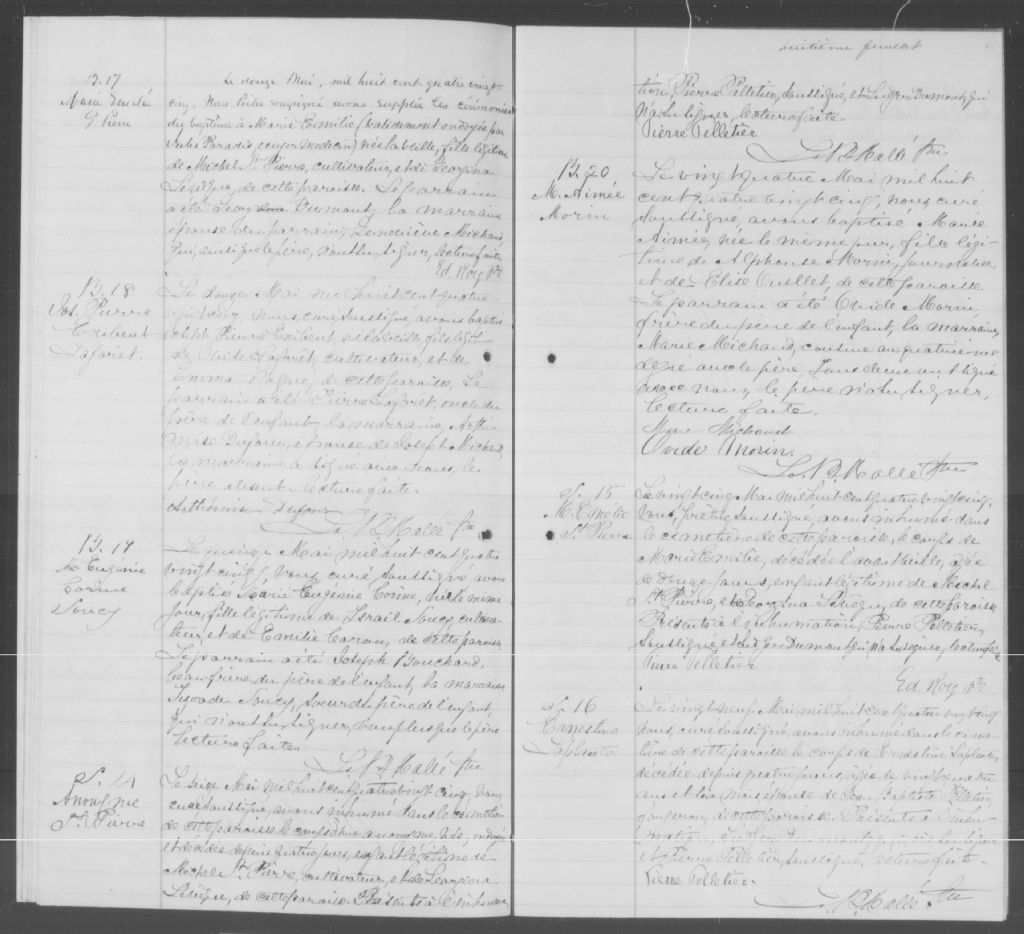 B. 17
Marie Emelie
St Pierre
Le douze Mai, mil huit cent quatre vingt
cinq, Nous Prêtre soussigné avons suppléé les cérémonies
du baptême à Marie Emilie (validement ondoyée par
Jules Paradis, médecin) née la veille, fille légitime
de Michel St Pierre, cultivateur, et de Georgina
Lévêque, de cette paroisse. Le parrain
a été Dumont, la marraine
épouse du parrain, Michaud,
qui, ainsi que le père, n'ont su signer, lecture faite
Ed. Roy Ptre
B. 18
Jos. Pierre
Lafaret.
Le douze Mai mil huit cent quatre
vingt cinq, nous, curé soussigné avons baptisé
Joseph Pierre né la veille, fils légiti-
de Ovide Lafaret, cultivateur, et de
Emma de cette paroisse. Le
parrain a été Pierre Lafaret, oncle du
père de l'enfant, la marraine, Arthé-
mise Dufour, épouse de Joseph Michaud,
la marraine a signé avec nous, le
père absent. lecture faite.
Arthémise Dufour
L. N. Mallé Ptre
B. 19
M. Eugénie
Corine
Soucy
Le quinze Mai mil huit cent quatre
vingt cinq, nous, curé, soussigné avons
baptisé Marie Eugenie Corine, née le même
jour, fille légitime de Israël Soucy, cultiva-
teur, et de Emilie Caron, de cette paroisse
Le parrain a été Joseph Bouchard,
beau-frère, du père de l'enfant, la marraine
Soucy, soeur du père de l'enfant,
qui n'ont su signer, non plus que le père
Lecture faite.
L. N. Mallé Ptre
S. 14
Anonyme
St. Pierre
Le seize Mai mil huit cent quatre vingt cinq, nous
curé soussigné, avons inhumé dans le cimetière
de cette paroisse le corps d'une anonyme, née, ondoyée
et décédée depuis quatre jours, enfant légitime de
Michel St. Pierre, cultivateur, et de Georgina
Lévêque, de cette paroisse. Présents à l'inhuma-
huitième feuillet
tion, Pierre Pelletier, soussigné, et Dumont, qui
n'a su signer, lecture faite
Pierre Pelletier
L. N. Mallé Ptre
B. 20
M. Aimée
Morin
Le vingt quatre Mai mil huit
cent quatre vingt cinq, nous curé
soussigné, avons baptisé Marie
Aimée, née le même jour, fille légi-
time de Alphonse Morin, journalier
et de Elise Ouellet, de cette paroisse.
Le parrain a été Ovide Morin,
frère du père de l'enfant, la marraine,
Marie Michaud, cousine au quatrième
degré avec le père, tous deux ont signé
avec nous, le père n'a su signer,
lecture faite.
Marie Michaud
Ovide Morin.
L. N. Mallé Ptre
S. 15
M. Emelie
St. Pierre
Le vingt cinq Mai mil huit cent quatre vingt cinq,
Nous, prêtre soussigné, avons inhumé dans
le cimetière de cette paroisse, le corps de
Marie Emilie, décédée l'avant veille, âgée
de douze jours, enfant légitime de Michel
St. Pierre, et de Georgina Lévêque, de cette paroisse
Présents à l'inhumation, Pierre Pelletier,
soussigné, et Dumont, qui n'a su signer, lecture faite
Pierre Pelletier
Ed. Roy Ptre
S. 16
Ernestine
Laplante
Le vingt neuf Mai mil huit cent quatre vingt cinq
nous, curé soussigné, avons inhumé dans le cime-
tière de cette paroisse le corps de Ernestine Laplante,
décédée depuis quatre jours, âgée de vingt quatre
ans et six mois épouse de Jean Baptiste Pelletier
de cette paroisse. Présents à l'inhu-
mation,
et Pierre Pelletier, soussigné, lecture faite.
Pierre Pelletier.
L. N. Mallé Ptre